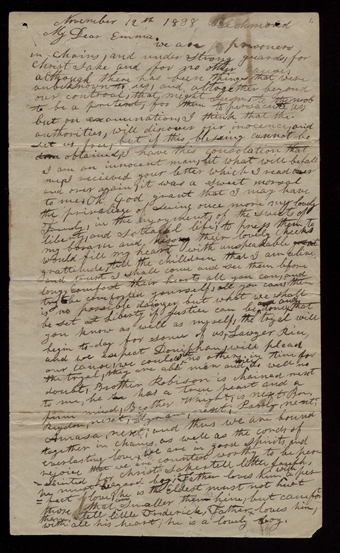 November 12th 1838 Richmond
My Dear Emma,
we are prisoners
in chains, and under strong guards, for
Christ sake and for no other
although there has been things that were
unbeknown to us, and altogether beyond
our control, that might seem, to the mob
to be a pretext, for them to persecute us,
but on examination, I think that the
authorities, will discover our innocence, and
set us free, but if this blessing cannot be
obtained, I have this consolation that
I am an innocent man, let what will befall
me, I received your letter which I read over
and over again, it was a sweet morsel
to me, Oh God grant that I may have
the privilege of seeing once more my lovely
Family, in the enjoyment, of the sweets of
liberty, and life, to press them to
my bosom and their lovely cheeks
would fill my heart with unspeakable
gratitude, tell the children that I am alive
and trust I shall come and see them before
long, comfort their hearts all you can, and
try to be comforted yourself, all you can, there
is no possible danger but what we shall
be set at liberty if justice can be done, and that
you know as well as myself, the tryal will
begin to day for some of us, Lawyer Rice
and we expect Doniphan, will plead
our cause, we could no others in time for
the tryal, they are able men and, do well no
doubt, Brother Robison is chained next
to me, he has a true heart and a
firm mind, Brother Wight, is next, Bro.
Rigdon, next, Hyram, next, Parley, next,
Amasa, next, and thus we are bound
together in chains, as well as the cords of
everlasting love, we are in good spirits and
rejoice that we are counted worthy to be
Christ sake, tell little Joseph,
he must be a good boy, Father loves him, with a
perfect love, he is the Eldest must not hurt
those that smaller then him, but comfort
them tell little Fredrick, Father, loves him,
with all his heart, he is a lovely boy.